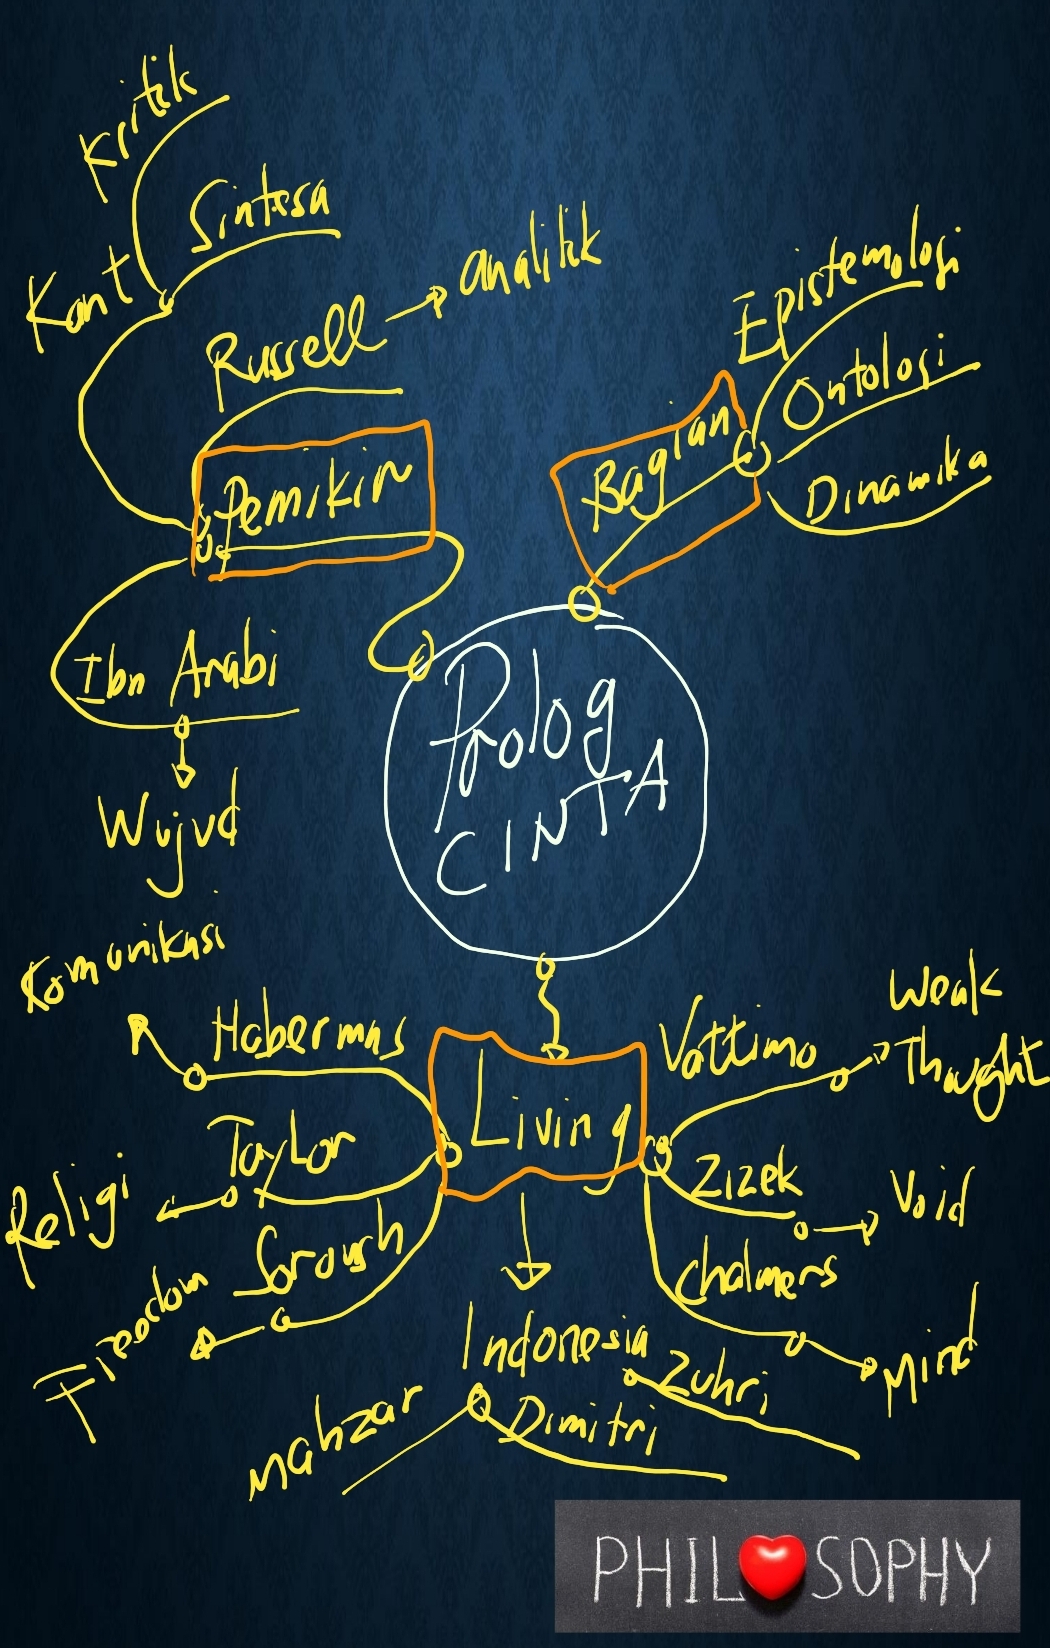 Kritik
Sintesa
Kant
Russell
analitik
Pemikir
Ibn Arabi
Wujud
Epistemologi
Ontologi
Bagian
Dinamika
Prolog
CINTA
Komunikasi
Habermas
Taylor
Religi
Soroush
Freedom
Living
Vattimo
Weak
Thought
Zizek
Void
Chalmers
Mind
Indonesia
Zuhri
Mahzar
Dimitri
PHILOSOPHY